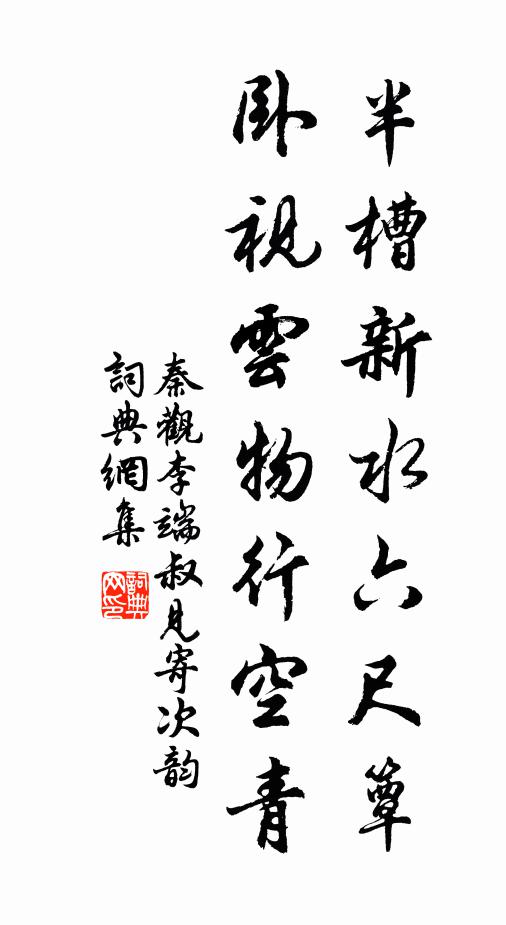 半槽新水六尺簟
臥視雲物行空青
秦觀李端叔見寄次韵
詞典網集
詞典网印